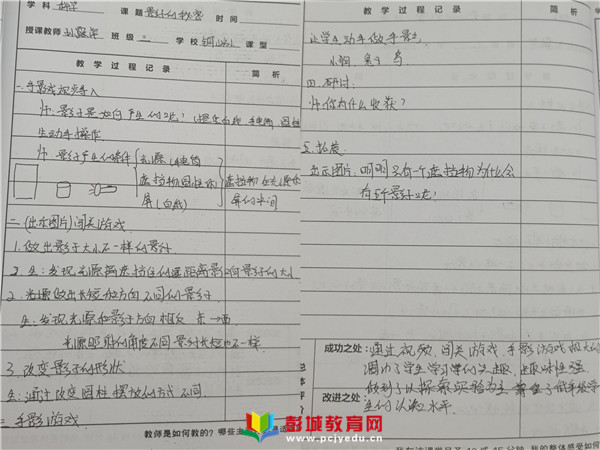 学科 科学 课题 影子的秘密 时间
授课教师 班级 三 学校 铜山 课型
教学过程记录 简析
一、手影戏视频导入
师:影子是如何产生的呢?(提供白纸 手电筒 圆柱
生动手操作
师:影子产生的条件 光源(手电筒
遮挡物(圆柱体
屏(白纸)
遮挡物在光源和
屏的中间
二、(出示图片)闯关游戏
1.做出影子大小不一样的影子
2.生:发现光源离遮挡住的远近距离影响影子的大小
2.光源做出长短和方向不同的影子
生:发现光源和影子方向相反 东→西
光源照射的角度不同影子长短也不一样
3.改变影子的形状
生:通过改变圆柱摆放的方式不同
三、手影游戏
教师是如何教的?哪些
教学过程记录 简析
让学生动手做手影
小狗 兔子 鸟
四、研讨
师:你有什么收获?
五、拓展
出示图片,明明只有一个遮挡物为什么会
有5个影子呢?
成功之处:通过视频、闯关游戏、手影游戏极大的
调动了学生学习课的兴趣,趣味性强
做到了以探索实验为主 符合了低年级学
改进之处: 生的认知水平.
彭城教育网
www.pcjyedu.cn